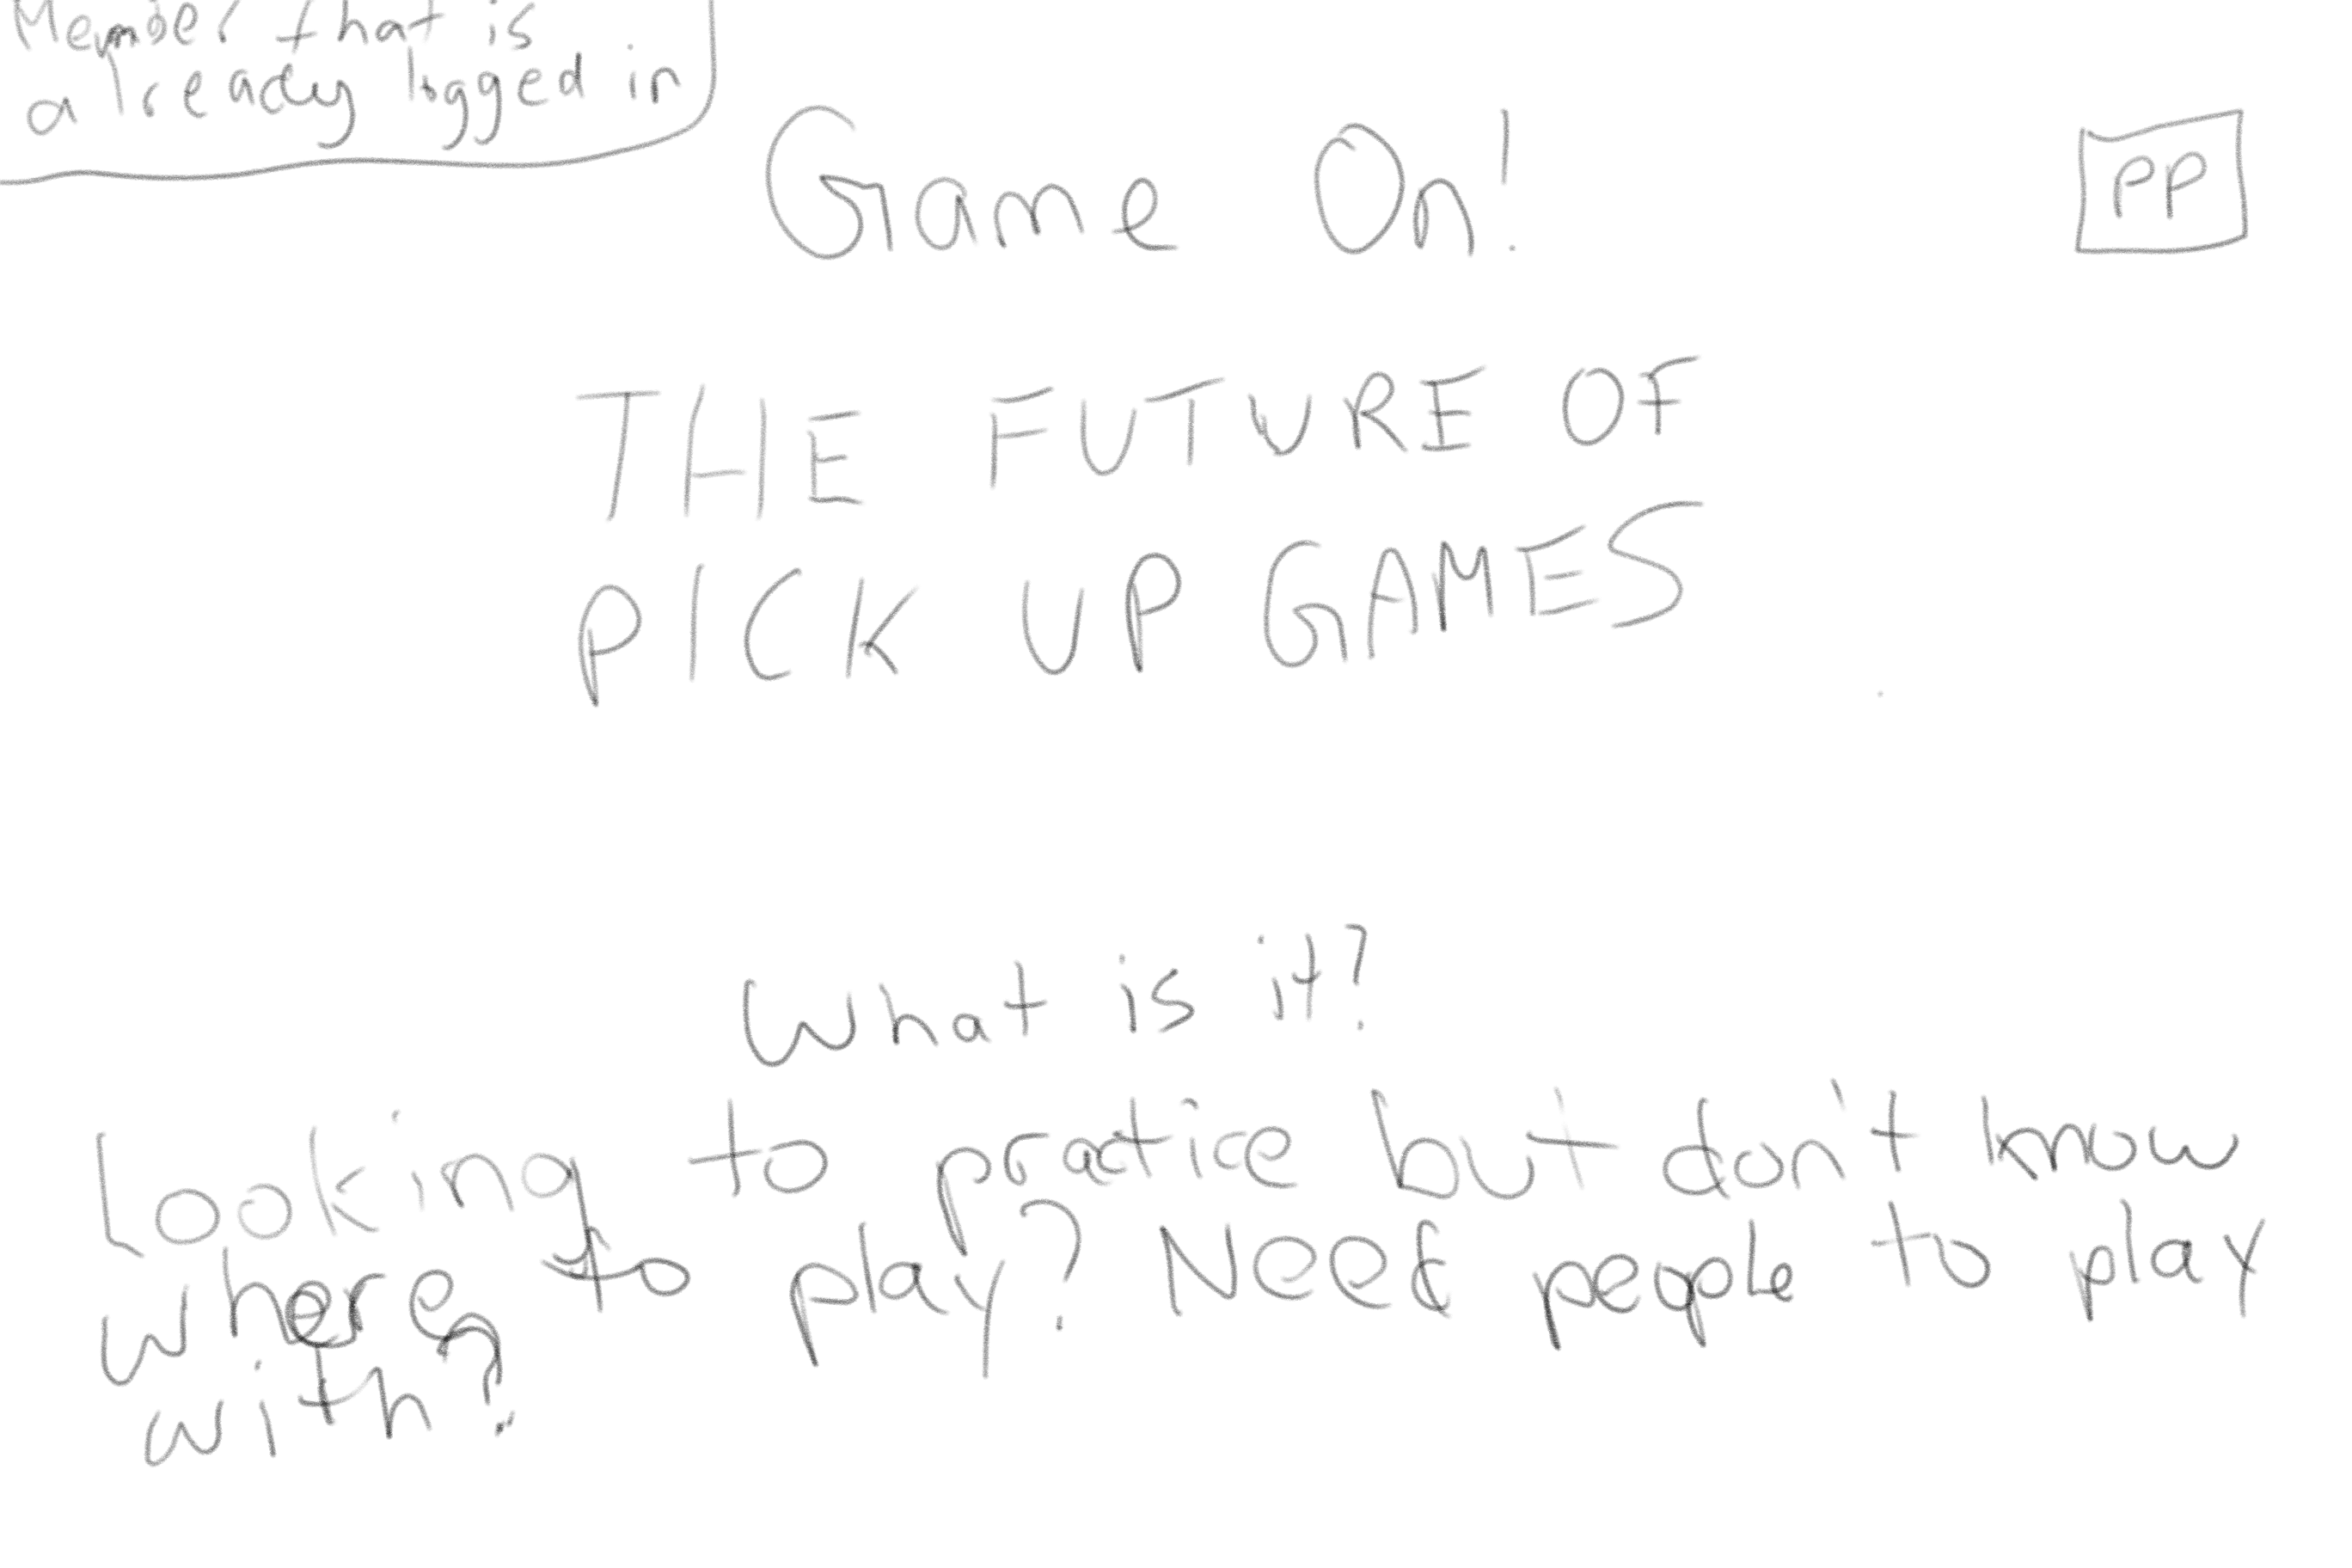 Member that is
already logged in
Game On!
PP
THE FUTURE OF
PICK UP GAMES
What is it?
Looking to practice but don't know
where to play? Need people to play
with?